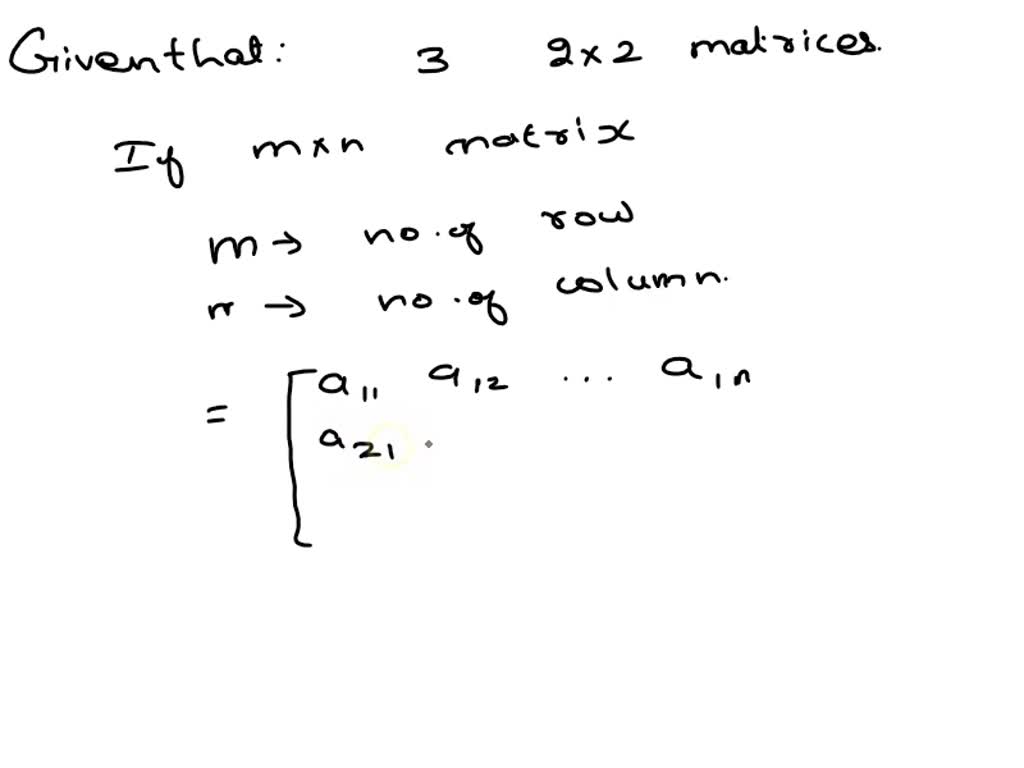 Given that: 3 2x2 matrices.
If mxn matrix
m → no. of row
n → no. of column.
= [ a11 a12 ... a1n
a21 .